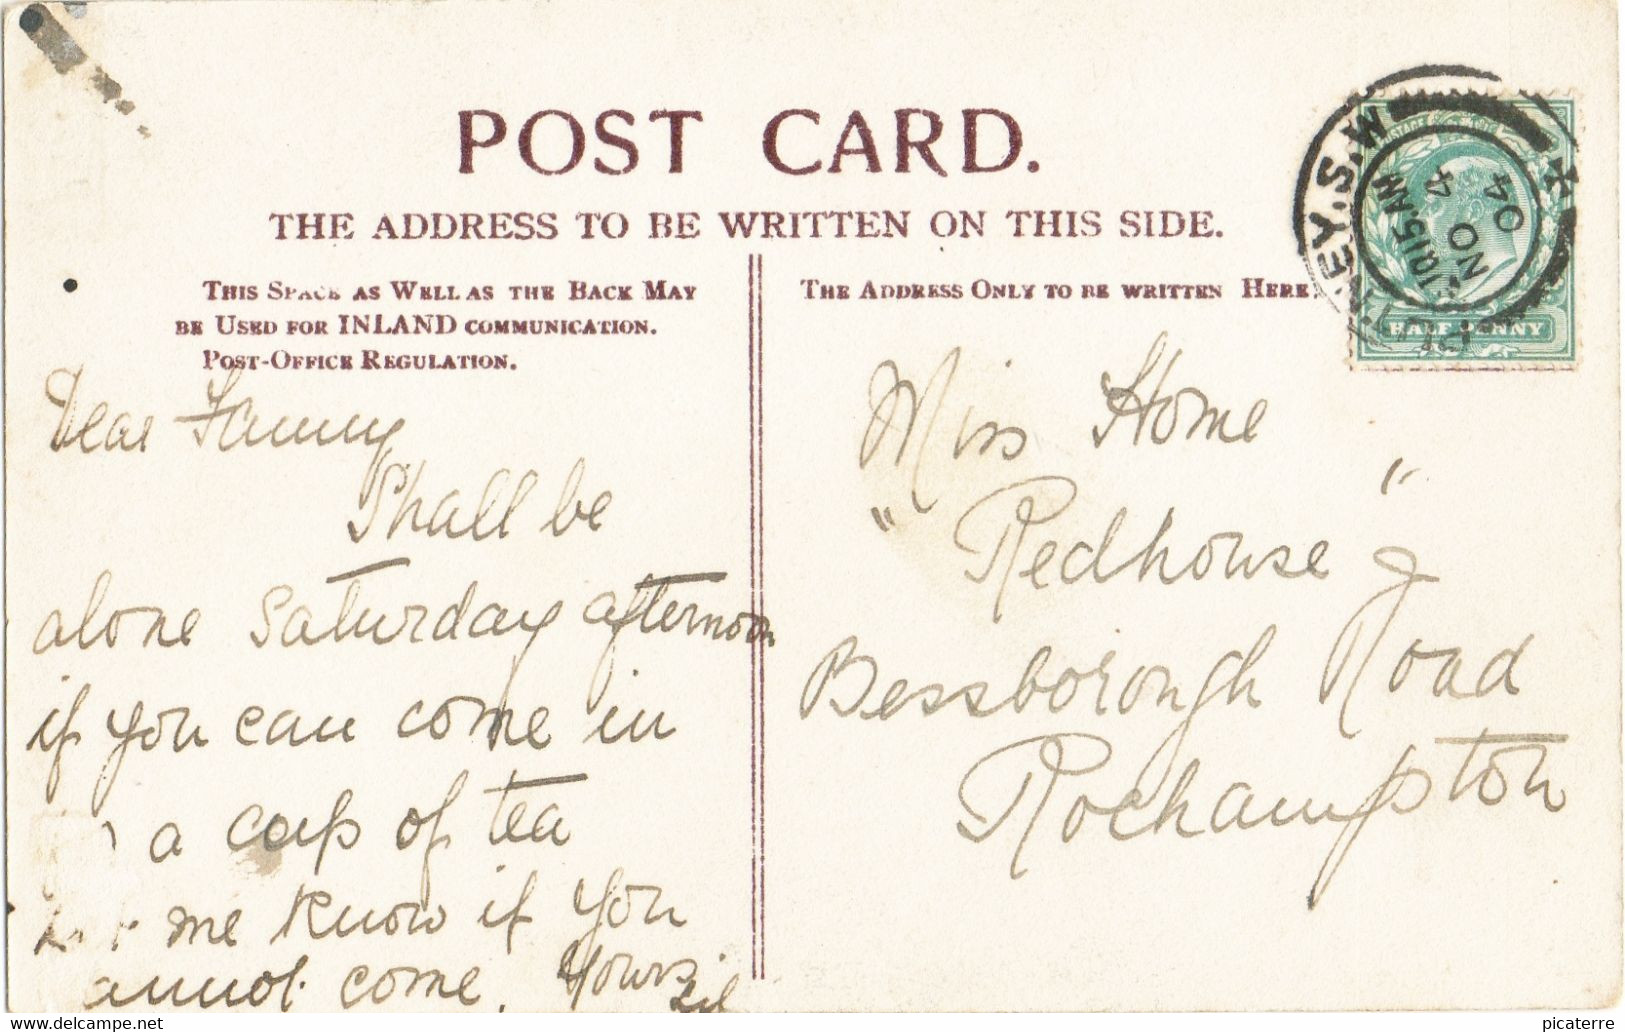 POST CARD.
THE ADDRESS TO BE WRITTEN ON THIS SIDE.
THIS SPACE AS WELL AS THE BACK MAY
BE USED FOR INLAND COMMUNICATION.
POST-OFFICE REGULATION.
THE ADDRESS ONLY TO BE WRITTEN HERE.
Dear Fanny
Shall be
alone Saturday afternoon
if you can come in
a cup of tea
me know if you
annot come. Yours
Miss Home
"Redhouse"
Bessborough Road
Roehampton
NEY.S.W
10 15 AM
NO 4
04
POSTAGE
HALF PENNY
www.delcampe.net
picaterre